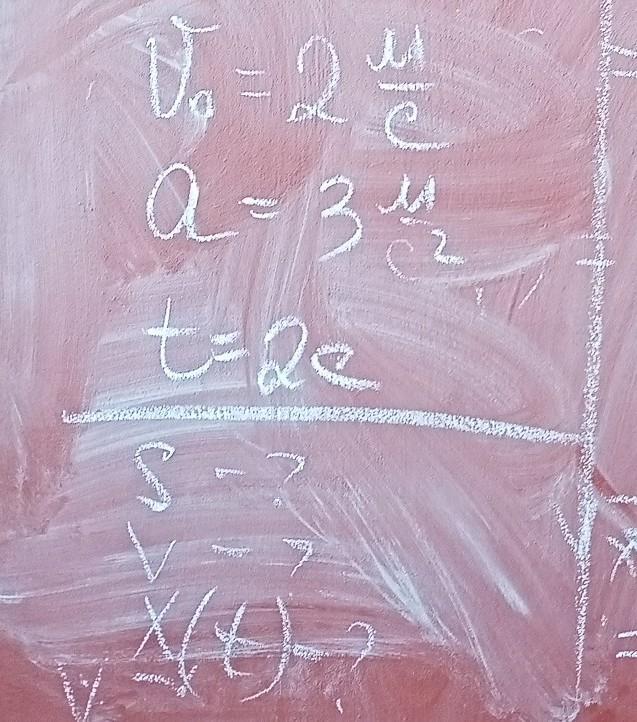 V₀ = 2 м/с
a = 3 м/с²
t = 2c
S - ?
V - ?
X(t) - ?
V